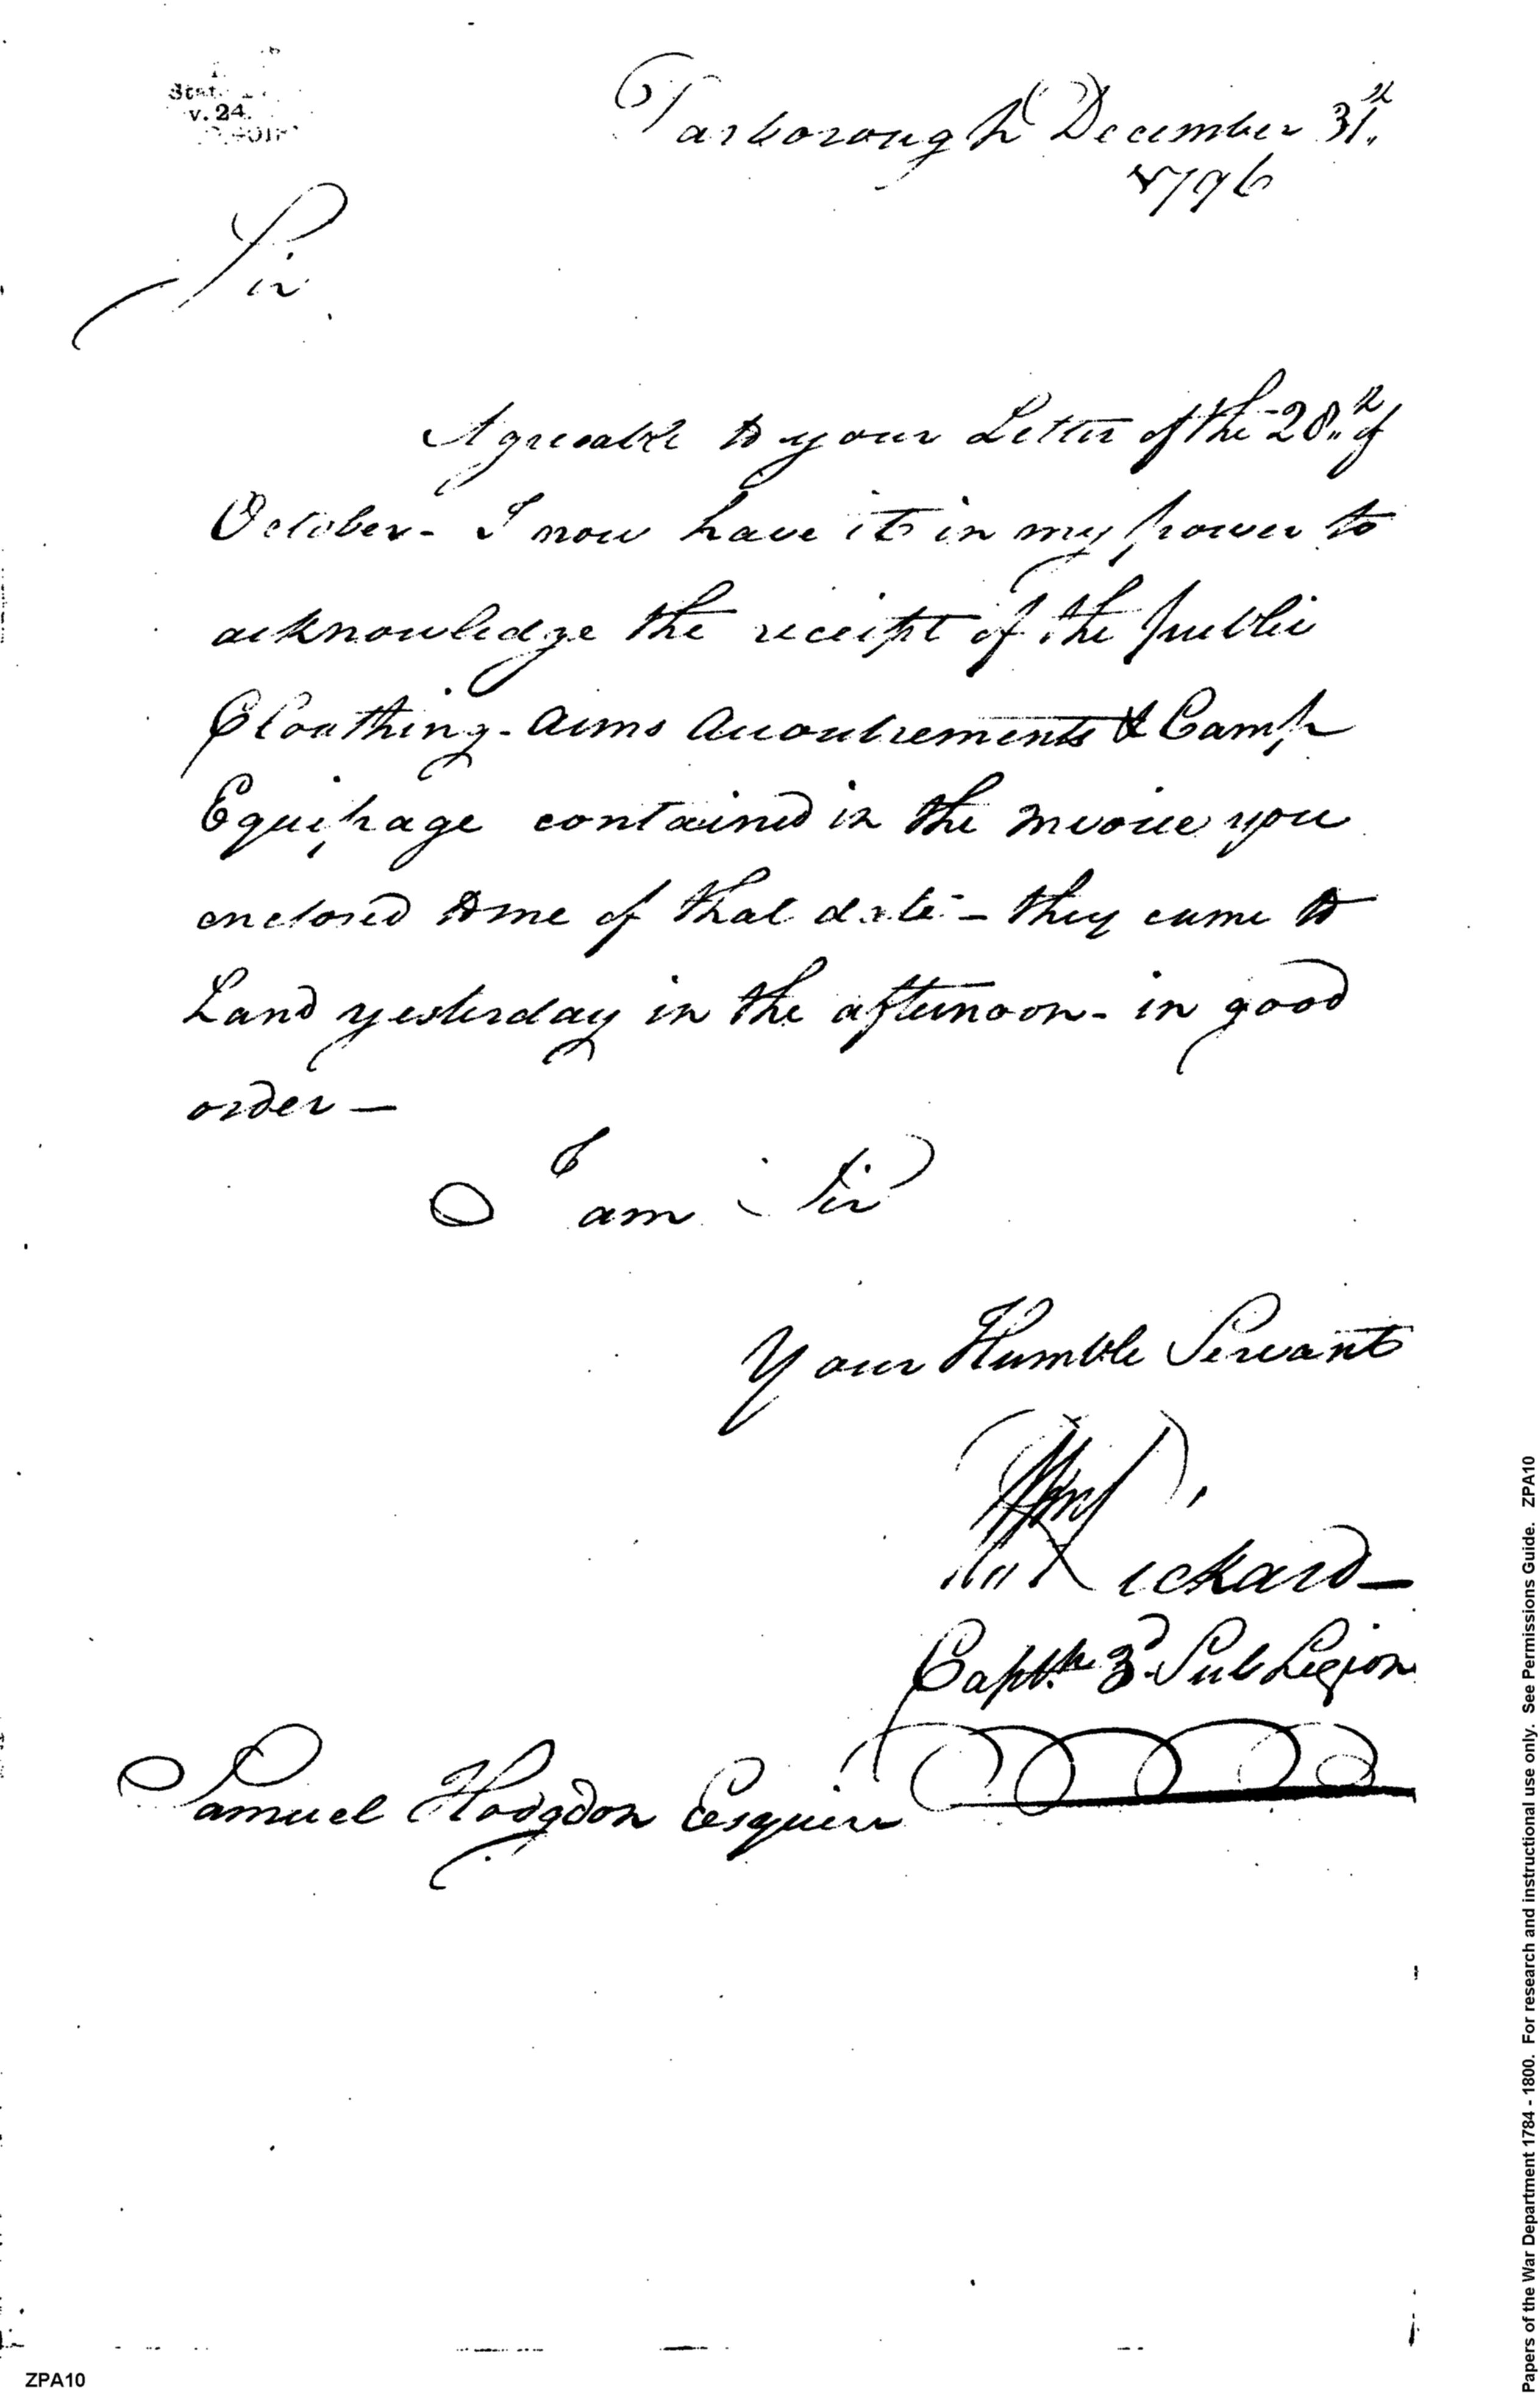 Stat
v. 24.
Tarborough December 31st
1796
Sir
Agreeable to your Letter of the 28th of
October - I now have it in my power to
acknowledge the receipt of the public
Cloathing - Arms Accoutrements & Camp
Equipage contained in the invoice you
enclosed to me of that date - they came to
Land yesterday in the afternoon - in good
order -
I am Sir
Your Humble Servant
Wm
Rickard -
Captn 3d Sub Legion
Samuel Hodgdon Esquire
ZPA10
Papers of the War Department 1784 - 1800. For research and instructional use only. See Permissions Guide. ZPA10